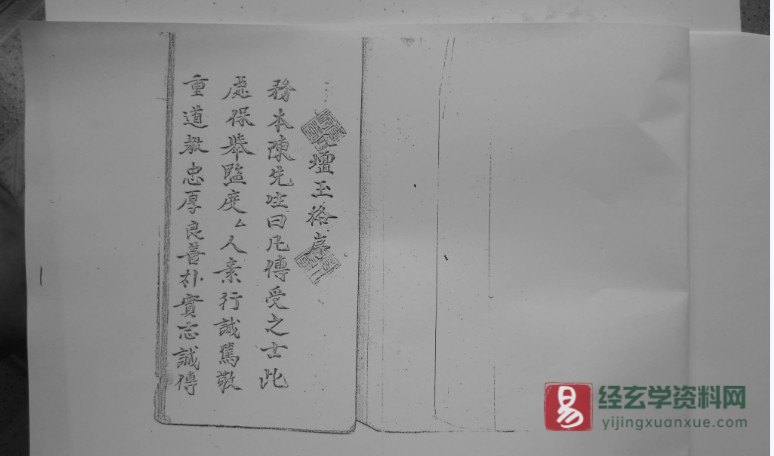 壇玉格序
務本陳先生曰凡傳受之士此
處保舉監度厶人素行誠篤敬
重道教忠厚良善朴實志誠傳
经玄学资料网
yijingxuanxue.com
易